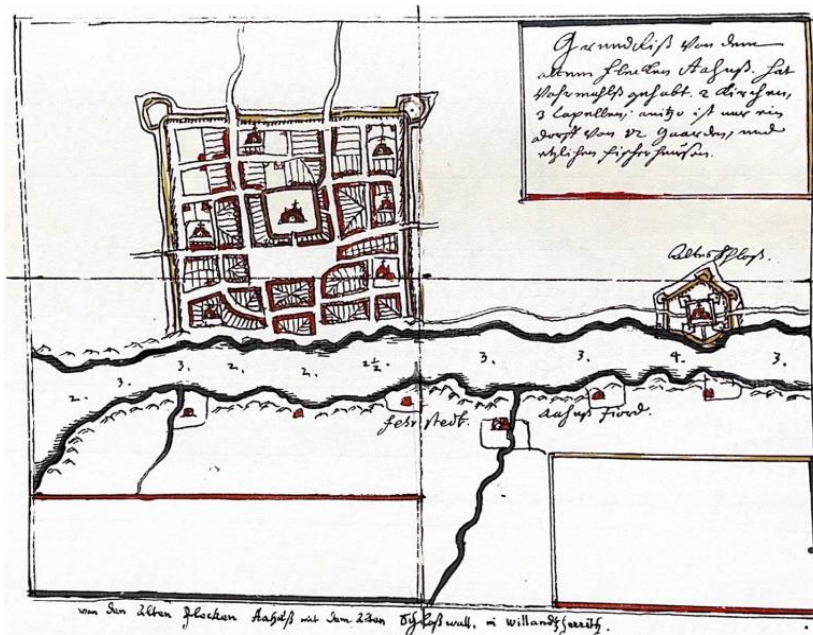 Grundtriß Von dem
altem flecken Aahuß. hat
Vohrmahlß gehabt. 2 Kirchen,
3 Capellen; anitzo ist nur ein
dorff von 12 Gaarden, und
etzlichen fischerheußern.
Altes Schloß.
3. 2. 2. 2½ 3. 3. 4. 3.
2. 3.
fehrstedt.
Aahuß Fiord.
von den Alten flecken Aahuß mit dem Alten Schloßwall, in Willandtzherrith.